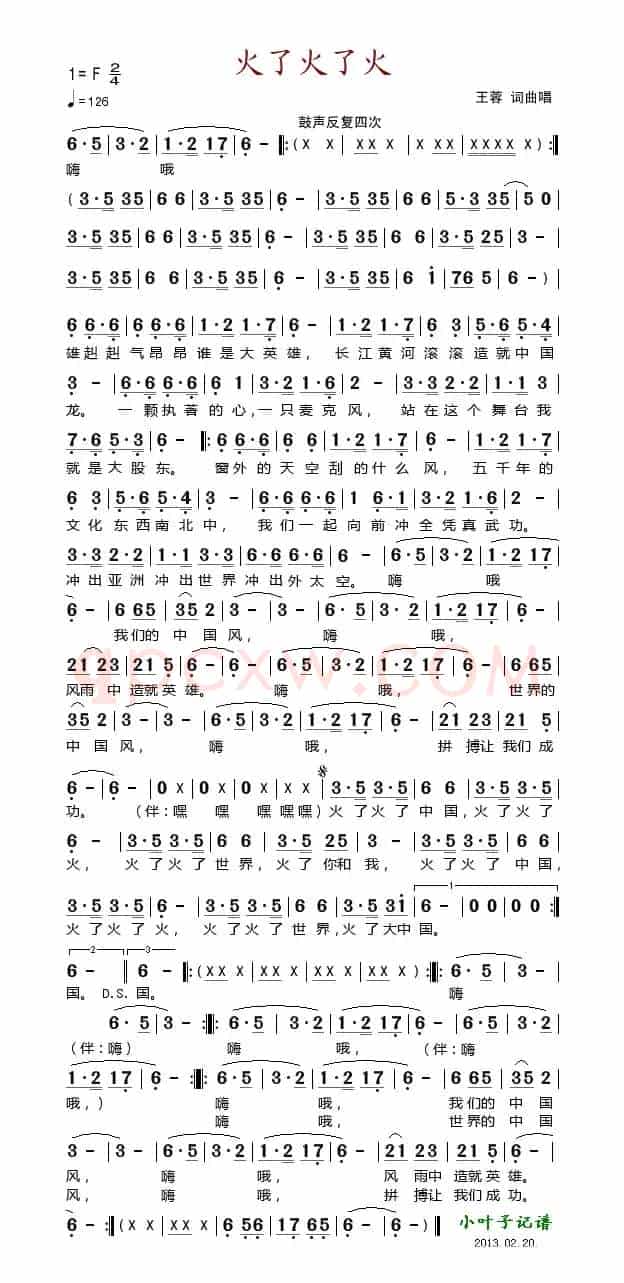 火了火了火
1= F 2/4
♩=126
王蓉 词曲唱
鼓声反复四次
6·5|3·2|1·2 17|6 -‖:(X X|XX X|X·X X X|XXXX X):‖
嗨 哦
(3·5 35|6 6|3·5 35|6 -|3·5 35|6 6|5·3 35|5 0|
3·5 35|6 6|3·5 35|6 -|3·5 35|6 6|3·5 25|3 -|
3·5 35|6 6|3·5 35|6 -|3·5 35|6 i|76 5|6 -)|
6 6·6|6·6 6·6|1·2 1·7|6 -|1·2 1·7|6 6 5|5·6 5·4|
雄赳赳气昂昂谁是大英雄, 长江黄河滚滚造就中国
3 -|6·6 6·6|6 1|3·2 1·6|3 -|3·3 3·2|1·2 1 3|
龙。 一颗执著的心,一只麦克风, 站在这个舞台我
7·6 5·3|6 -‖:6·6 6·6|1·2 1·7|6 -|1·2 1·7|
就是大股东。 窗外的天空刮的什么风, 五千年的
6 3|5·6 5·4|3 -|6·6 6·6|1 6·1|3·2 1·6|6 -|
文化东西南北中, 我们一起向前冲全凭真武功。
3·3 2·2|5·5 3·3|6·6 6·6|6 -|6·5|3·2|1·2 17|
冲出亚洲冲出世界冲出外太空。嗨 哦
6 -|6 65|35 2|3 -|3 -|6·5|3·2|1·2 17|6 -|
我们的 中国风, 嗨 哦,
21 23|21 5|6 -|6 -|6·5|3·2|1·2 17|6 -|6 65|
风雨中造就英雄。 嗨 哦, 世界的
35 2|3 -|3 -|6·5|3·2|1·2 17|6 -|21 23|21 5|
中国风, 嗨 哦, 拼搏让我们成
6 -|6 -|0 X|0 X|XX X|3·5 3·5|6 6|3·5 3·5|
功。 (伴:嘿 嘿 嘿嘿嘿)火了火了中国,火了火了
6 -|3·5 3·5|6 6|3·5 25|3 -|3·5 3·5|6 6|
火, 火了火了世界,火了你和我, 火了火了中国,
3·5 3·5|6 -|3·5 3·5|6 6|3·5 3i|6 -|0 0|0 0:‖
火了火了火, 火了火了世界,火了大中国。
6 -‖6 -‖:(XX XX|X·X X X|XX XX|X -):‖:6·5|3 -|
国。D.S.国。 嗨
6·5|3 -:‖:6·5|3·2|1·2 17|6 -|6·5|3·2|
(伴:嗨) 嗨 哦, (伴:嗨
1·2 17|6 -:‖:6·5|3·2|1·2 17|6 -|6 65|35 2|
哦,) 嗨 哦, 我们的 中国
嗨 哦, 世界的 中国
3 -|3 -|6·5|3·2|1·2 17|6 -|21 23|21 5|
风, 嗨 哦, 风雨中造就英雄。
风, 嗨 哦, 拼搏让我们成功。
6 -:‖(XX XX|X·X X X|6 56|17 65|6 -)‖
小叶子记谱
2013.02.20.